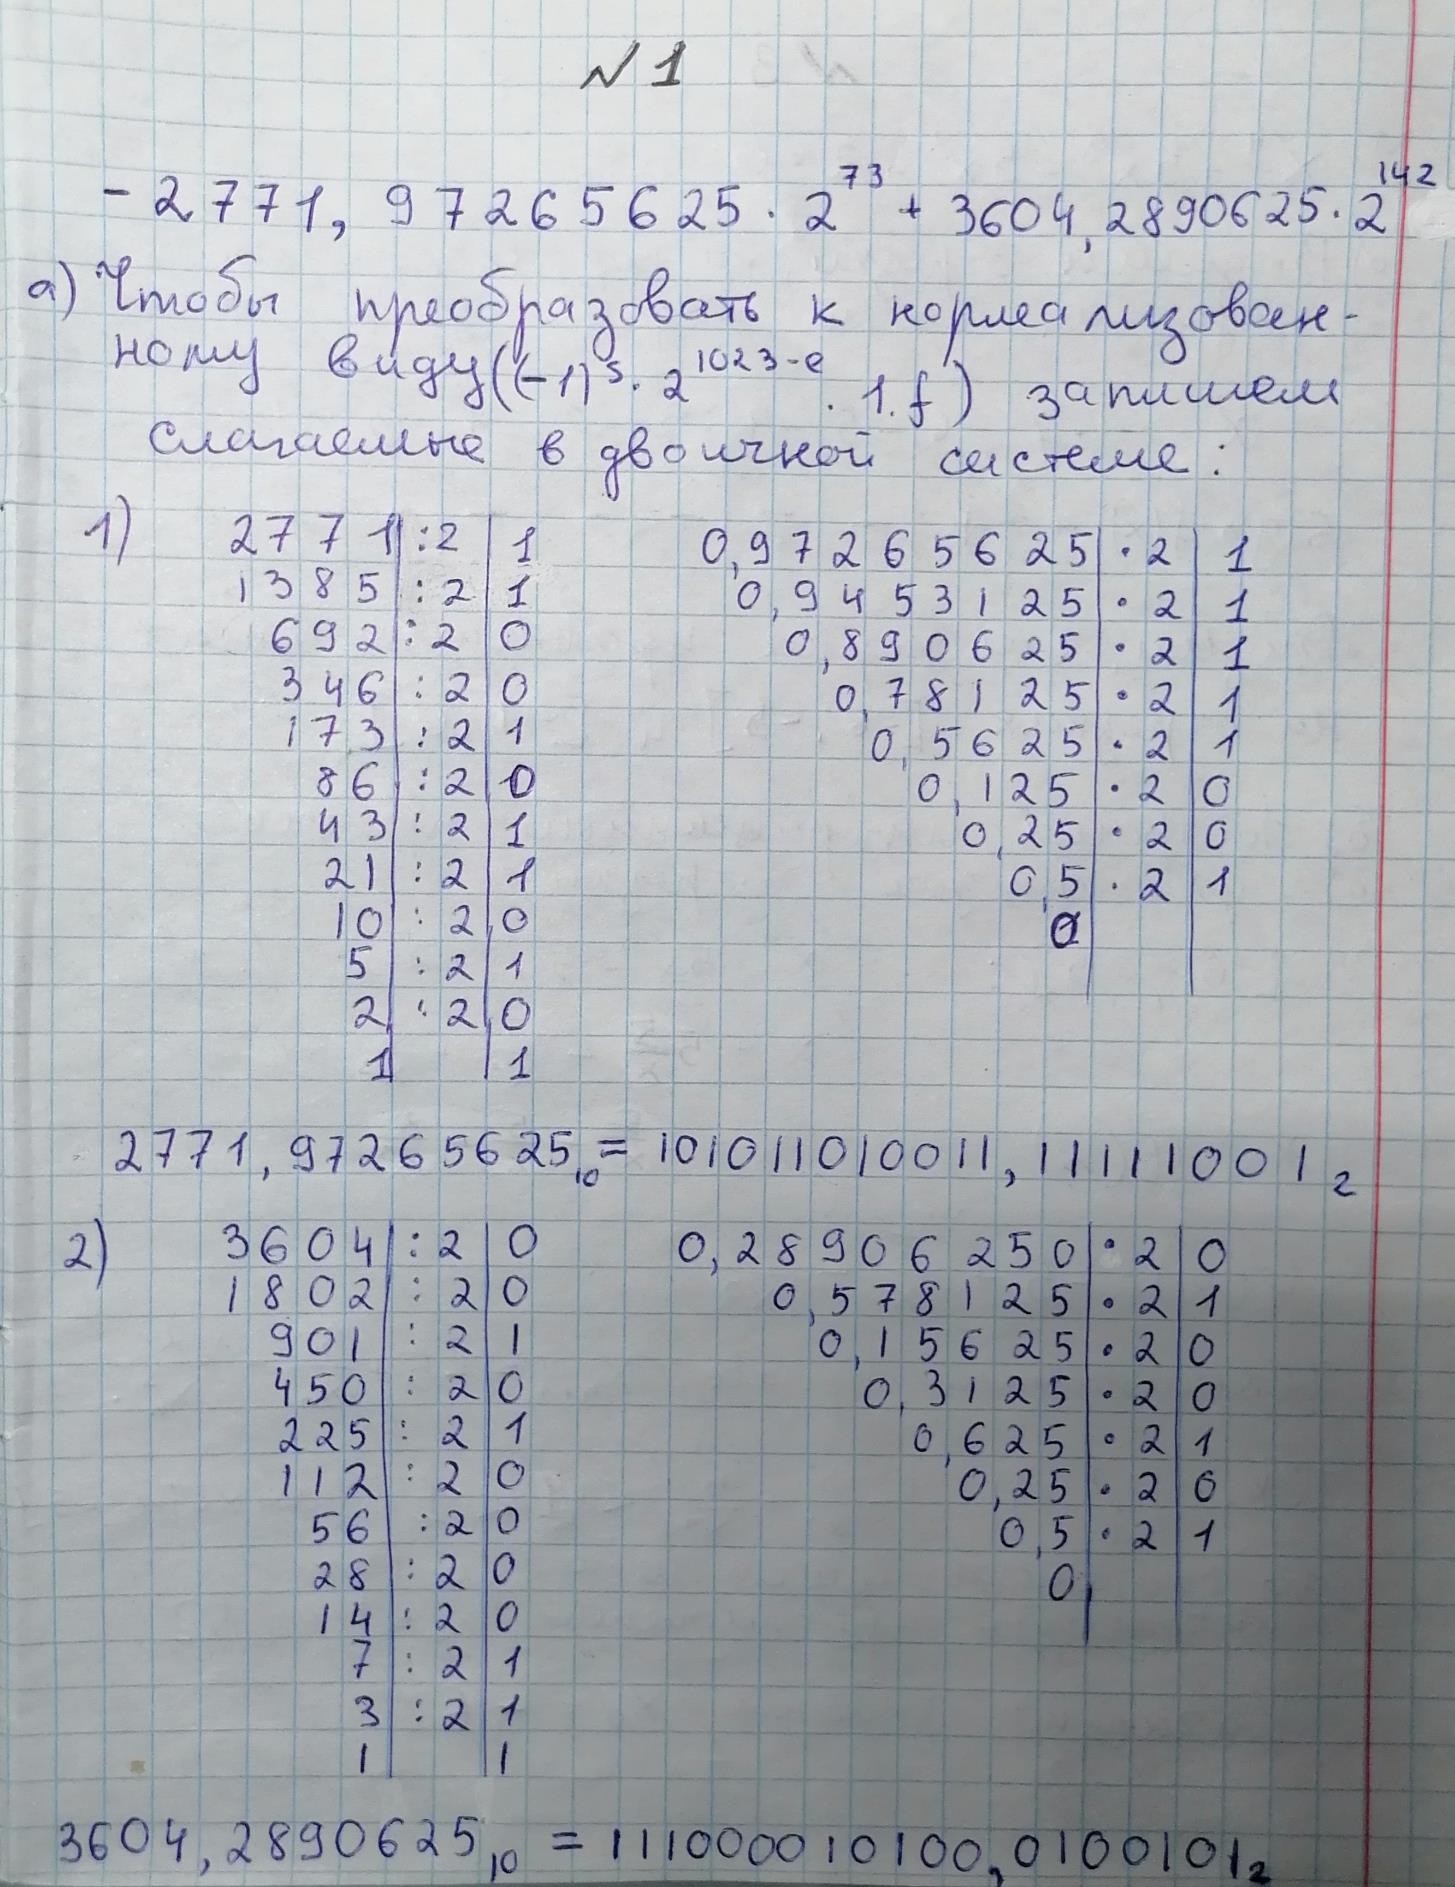 №1
-2771,97265625·2^73 + 3604,2890625·2^142
а) Чтобы преобразовать к нормализован-
ному виду ((-1)^s·2^1023-e · 1.f) запишем
слагаемые в двоичной системе:
1) 2771 :2 1 0,97265625 ·2 1
1385 :2 1 0,9453125 ·2 1
692 :2 0 0,890625 ·2 1
346 :2 0 0,78125 ·2 1
173 :2 1 0,5625 ·2 1
86 :2 0 0,125 ·2 0
43 :2 1 0,25 ·2 0
21 :2 1 0,5 ·2 1
10 :2 0 0
5 :2 1
2 :2 0
1 1
2771,97265625₁₀ = 101011010011,11111001₂
2) 3604 :2 0 0,28906250 ·2 0
1802 :2 0 0,578125 ·2 1
901 :2 1 0,15625 ·2 0
450 :2 0 0,3125 ·2 0
225 :2 1 0,625 ·2 1
112 :2 0 0,25 ·2 0
56 :2 0 0,5 ·2 1
28 :2 0 0,
14 :2 0
7 :2 1
3 :2 1
1 1
3604,2890625₁₀ = 111000010100,0100101₂